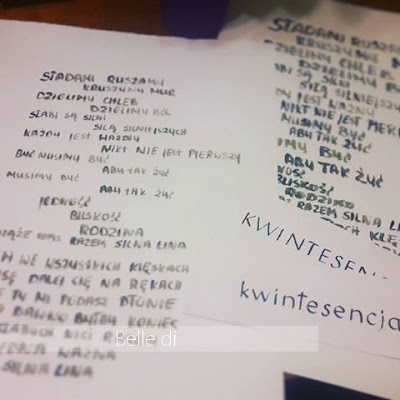 STADAMI RUSZAMY
KRUSZYMY MUR
DZIELIMY CHLEB
DZIELIMY BÓL
SŁABI SĄ SILNI
SIŁĄ SILNIEJSZYCH
KAŻDY JEST WAŻNY
NIKT NIE JEST PIERWSZY
BYĆ MUSIMY BYĆ
ABY TAK ŻYĆ
MUSIMY BYĆ
ABY TAK ŻYĆ
JEDNOŚĆ
BLISKOŚĆ
RODZINA
NAS RAZEM SILNA LINA
WE WSZYSTKICH KLĘSKACH
DALEJ CIĘ NA RĘKACH
TY MI PODASZ DŁONIE
DAWNO BYŁBY KONIEC
SŁABYCH NICI
WAŻNA
SILNA LINA
STADAMI RUSZA
KRUSZYMY MU
DZIELIMY CHLEB
DZIELIMY
SĄ SILNI
SIŁĄ SILNIEJSZY
JEST WAŻNY
NIKT NIE JEST PIER
MUSIMY BYĆ
ABY TAK ŻYĆ
BYĆ
ABY TAK ŻYĆ
BLISKOŚĆ
RODZINA
RAZEM SILNA LINA
KWINTESEN
kwintesencja
Belle di